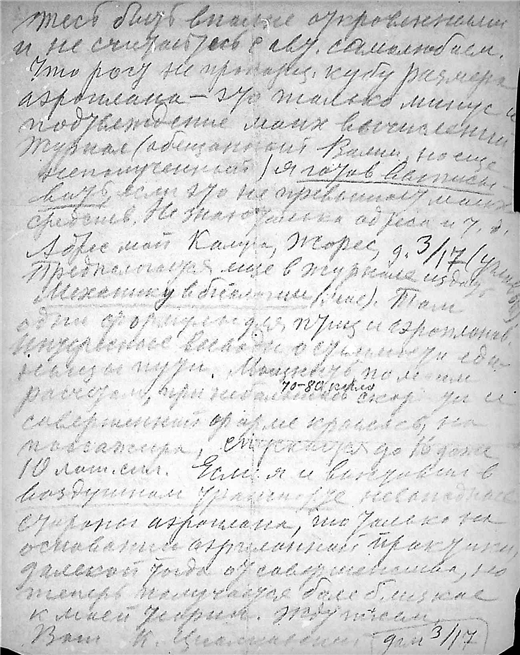 жесь быть вполне откровенным
и не считайтесь с авт. самолюбием.
Что рост не пропорц. кубу размера
аэроплана — это только минус и
подтверждение моих вычислений
Журнал (обещанный Вами, но еще
неполученный) я готов выписы
вать, если это не превышает моих
средств. Не знаю только адреса и т. д.
Адрес мой Калуга, Жорес, д. 3/17
Предполагаю еще в журнале издать
Механику в биологии (мою). Там
одни формулы для птиц и аэропланов.
Интересные выводы о
ницы пути. Мощность по моим
расчетам, при небольшой скорости и
70-80
совершенной форме крыльев, на
пассажира, спускается до 16 даже
10 лош. сил. Если я и выставил в
воздушном транспорте невыгодные
стороны аэроплана, то только на
основании аэропланной практики,
далекой тогда от совершенства, но
теперь получается более близкое
к моей теории. Жду писем
Ваш К. Циолковский дом 3/17